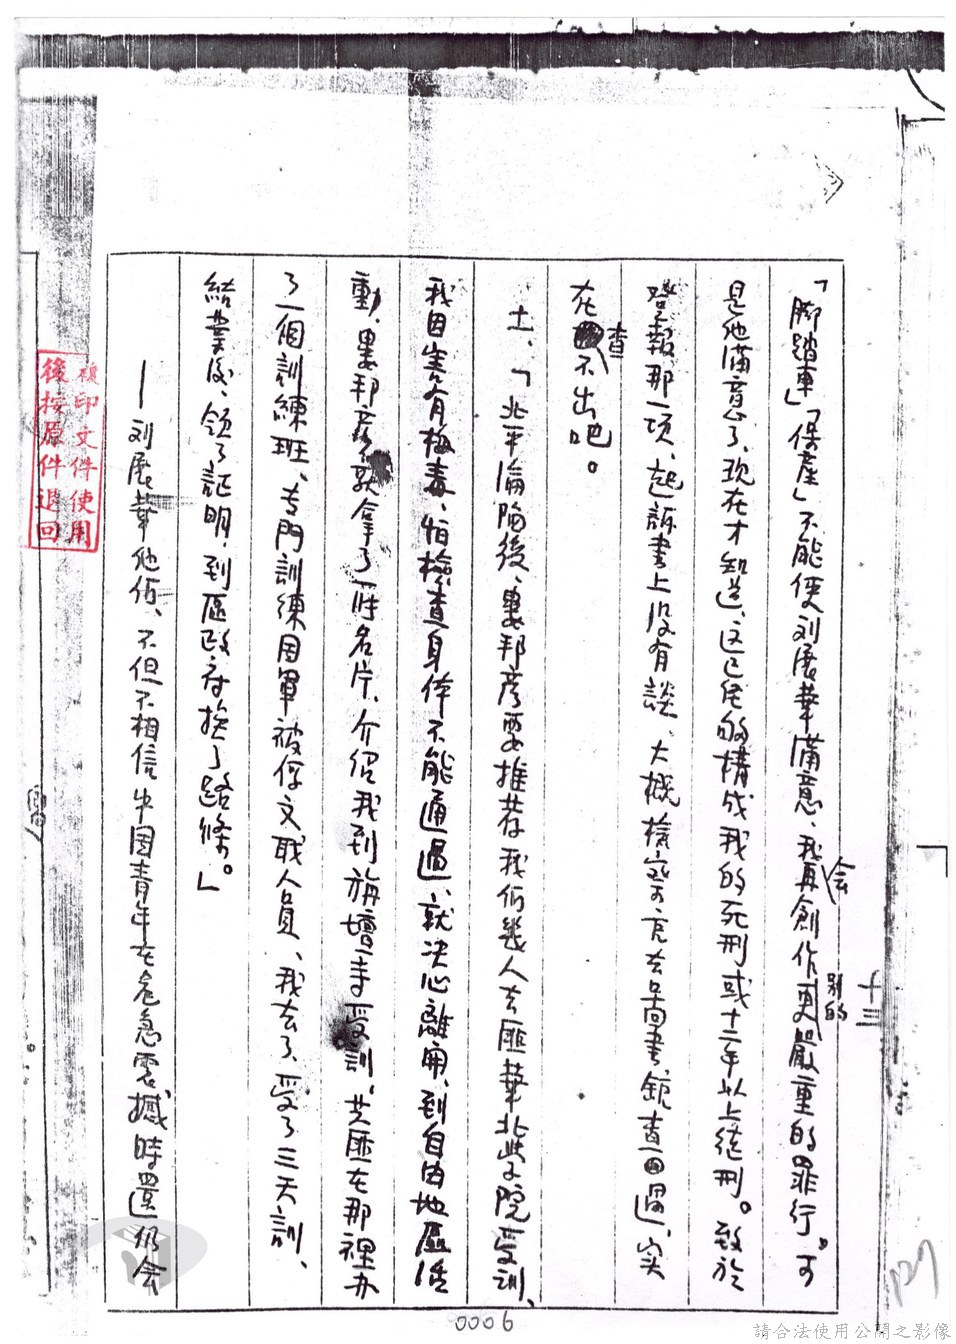 十三
「脚踏車」「保產」不能使刘展華滿意、我会再創作别的更嚴重的罪行。可
是他滿意了、现在才知道、这已足够構成我的死刑或十二年以上徒刑。致於
登報那一項、起訴書上没有談、大概檢察官去圖書館查過、实
在查不出吧。
十一、「北平淪陷後、婁邦彦要推荐我们幾人去匪華北大學院受訓、
我因害有梅毒、怕檢查身体不能通過、就决心離開、到自由地區活
動、婁邦彦就拿了一张名片、介绍我到旃壇寺受訓、共匪在那裡办
了一個訓練班、专門訓練国軍被俘文职人員、我去了、受了三天訓、
結業後、領了証明、到區政府换了路條。」
—刘展華他们、不但不相信中国青年在危急震撼時還仍会
複印文件使用
後按原件退回
127
0006
請合法使用公開之影像